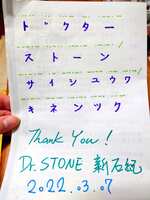 ドクター
ストーン
サイシユウワ
キネンツク
Thank You!
Dr.STONE 新石紀
2022.03.07